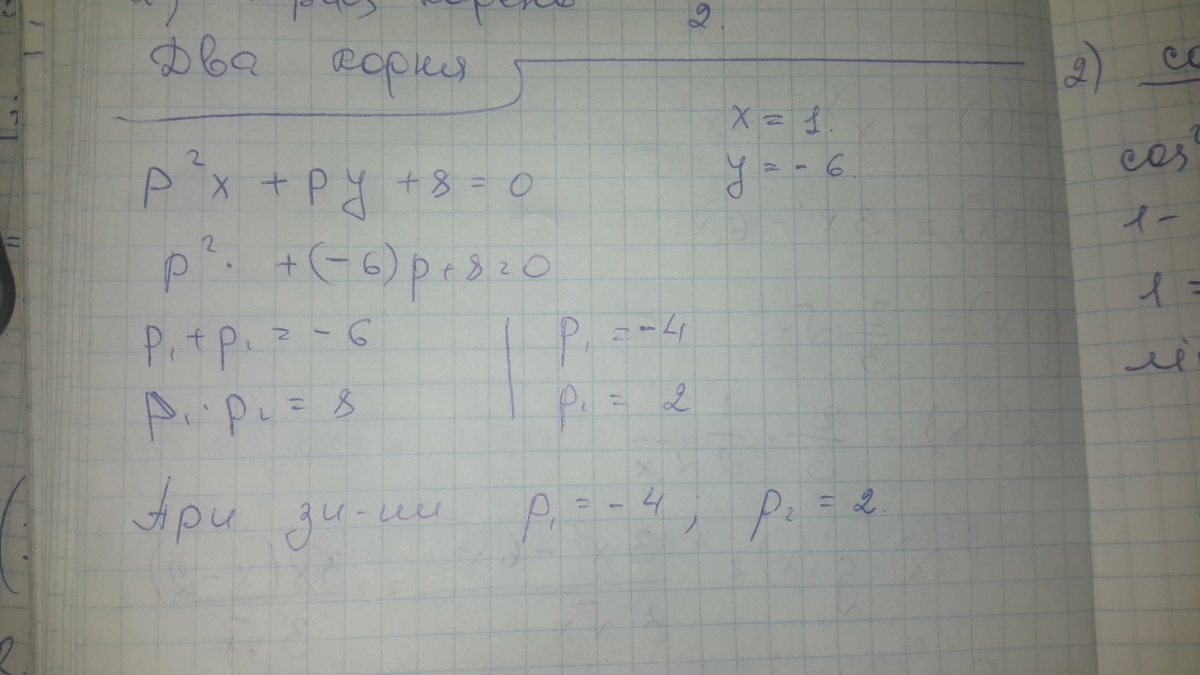 2.
Два корня
x = 1.
y = - 6.
p²x + py + 8 = 0
p². + (-6)p + 8 = 0
p₁ + p₂ = - 6
p₁ = -4
p₁ · p₂ = 8
p₂ = 2
При зн-ии p₁ = - 4 ; p₂ = 2.
2)
cos²
1 -
1 =